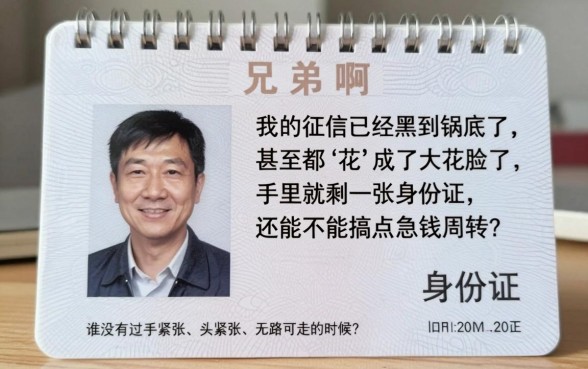 兄弟啊
我的征信已经黑到锅底了，
甚至都‘花’成了大花脸了，
手里就剩一张身份证，
还能不能搞点急钱周转？
身份证
谁没有过手紧张、头紧张、无路可走的时候？